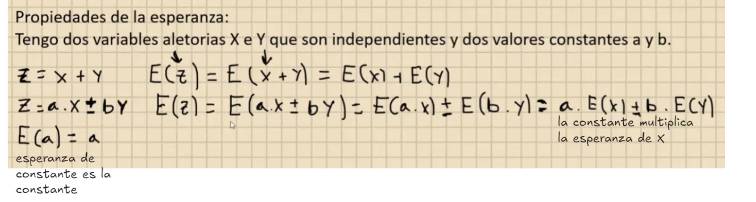 Propiedades de la esperanza:
Tengo dos variables aletorias X e Y que son independientes y dos valores constantes a y b.
Z = X + Y E(Z) = E(X + Y) = E(X) + E(Y)
Z = a.X ± bY E(Z) = E(a.X ± bY) = E(a.X) ± E(b.Y) = a.E(X) ± b.E(Y)
la constante multiplica
la esperanza de X
E(a) = a
esperanza de
constante es la
constante